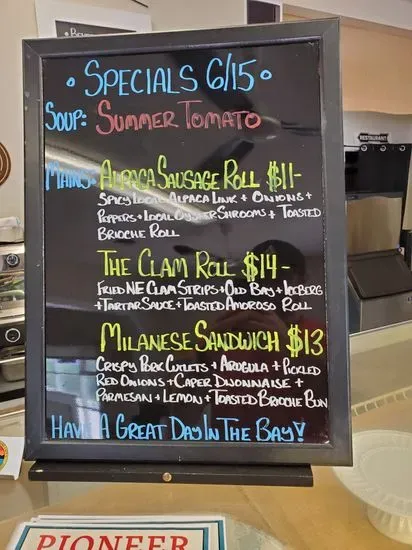 • SPECIALS 6/15 •
SOUP: SUMMER TOMATO
MAINS: ALPACA SAUSAGE ROLL $11-
SPICY LOCAL ALPACA LINK + ONIONS +
PEPPERS + LOCAL OYSTER SHROOMS + TOASTED
BRIOCHE ROLL
THE CLAM ROLL $14-
FRIED NE CLAM STRIPS + OLD BAY + ICEBERG
+ TARTAR SAUCE + TOASTED AMOROSO ROLL
MILANESE SANDWICH $13
CRISPY PORK CUTLETS + ARUGULA + PICKLED
RED ONIONS + CAPER DIJONNAISE +
PARMESAN + LEMON + TOASTED BRIOCHE BUN
HAVE A GREAT DAY IN THE BAY!
RESTAURANT
PIONEER